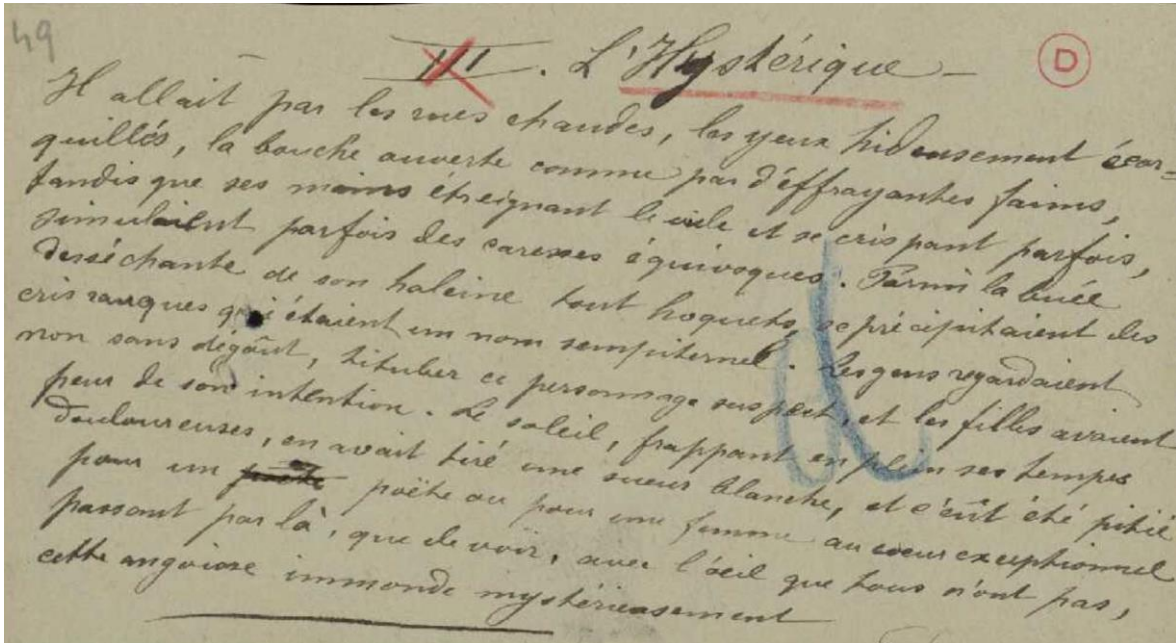 49
III. L'Hystérique — D
Il allait par les rues chaudes, les yeux hideusement écar-
quillés, la bouche ouverte comme par d'éffrayantes faims,
tandis que ses mains étreignant le vide et se crispant parfois,
simulaient parfois des caresses équivoques. Parmi la buée
desséchante de son haleine tout hoquets, se précipitaient des
cris rauques qui étaient un nom sempiternel. Les gens regardaient
non sans dégoût, tituber ce personnage suspect, et les filles avaient
peur de son intention. Le soleil, frappant en plein ses tempes
douloureuses, en avait tiré une sueur blanche, et c'eût été pitié
pour un poëte ou pour une femme au coeur exceptionnel
passant par là, que de voir, avec l'oeil que tous n'ont pas,
cette angoisse immonde mystérieusement